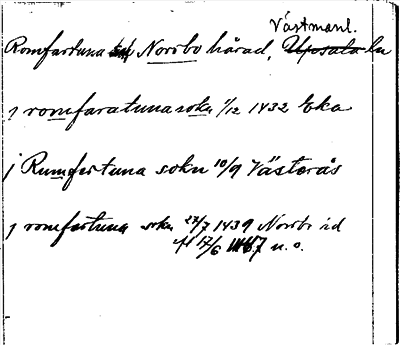 Västmanl.
Romfartuna Norrbo härad, Upsala län
j romfaratuna sokn 1/12 1432 Eka
j Rumfertuna sokn 10/9 Västerås
j romfertuna sokn 27/7 1439 Norrbo
17/6 n. o.